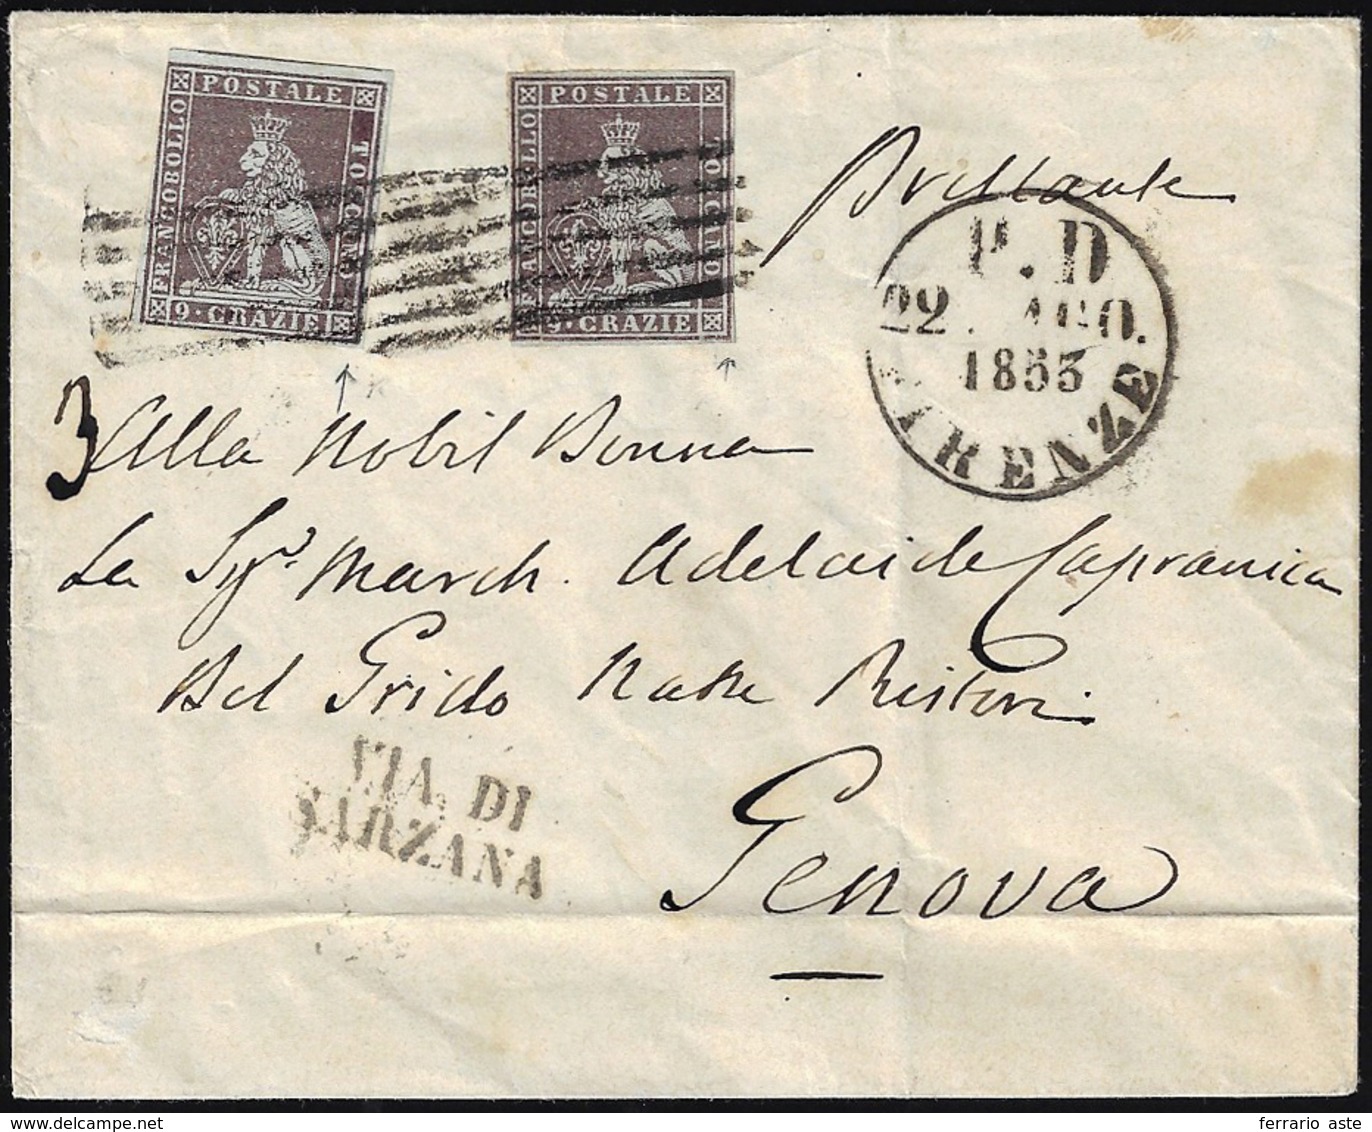 POSTALE
FRANCOBOLLO
TOSCANO
9 · CRAZIE
POSTALE
FRANCOBOLLO
TOSCANO
9 · CRAZIE
Brillante
P. D
22. AGO.
1853
FIRENZE
3
Alla Nobil Donna
La Sigra March. Adelaide Capranica
Del Grillo Nata Ristori
VIA. DI
SARZANA
Genova
ferrario aste